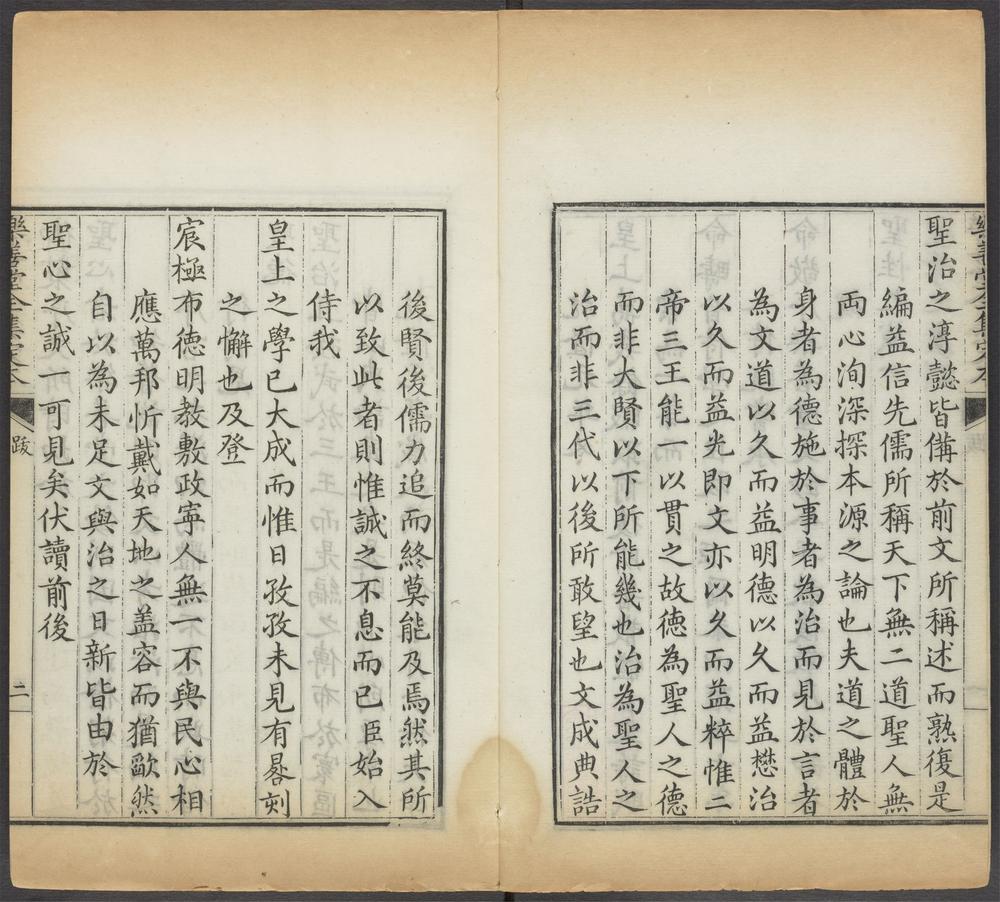 聖治之淳懿皆備於前文所稱述而熟復是
編益信先儒所稱天下無二道聖人無
兩心洵深探本源之論也夫道之體於
身者為德施於事者為治而見於言者
為文道以久而益明德以久而益懋治
以久而益光即文亦以久而益粹惟二
帝三王能一以貫之故德為聖人之德
而非大賢以下所能幾也治為聖人之
治而非三代以後所敢望也文成典誥
後賢後儒力追而終莫能及焉然其所
以致此者則惟誠之不息而已臣始入
侍我
皇上之學已大成而惟日孜孜未見有晷刻
之懈也及登
宸極布德明教敷政寧人無一不與民心相
應萬邦忻戴如天地之蓋容而猶歐然
自以為未足文與治之日新皆由於
聖心之誠一可見矣伏讀前後
樂善堂全集定本
跋
二